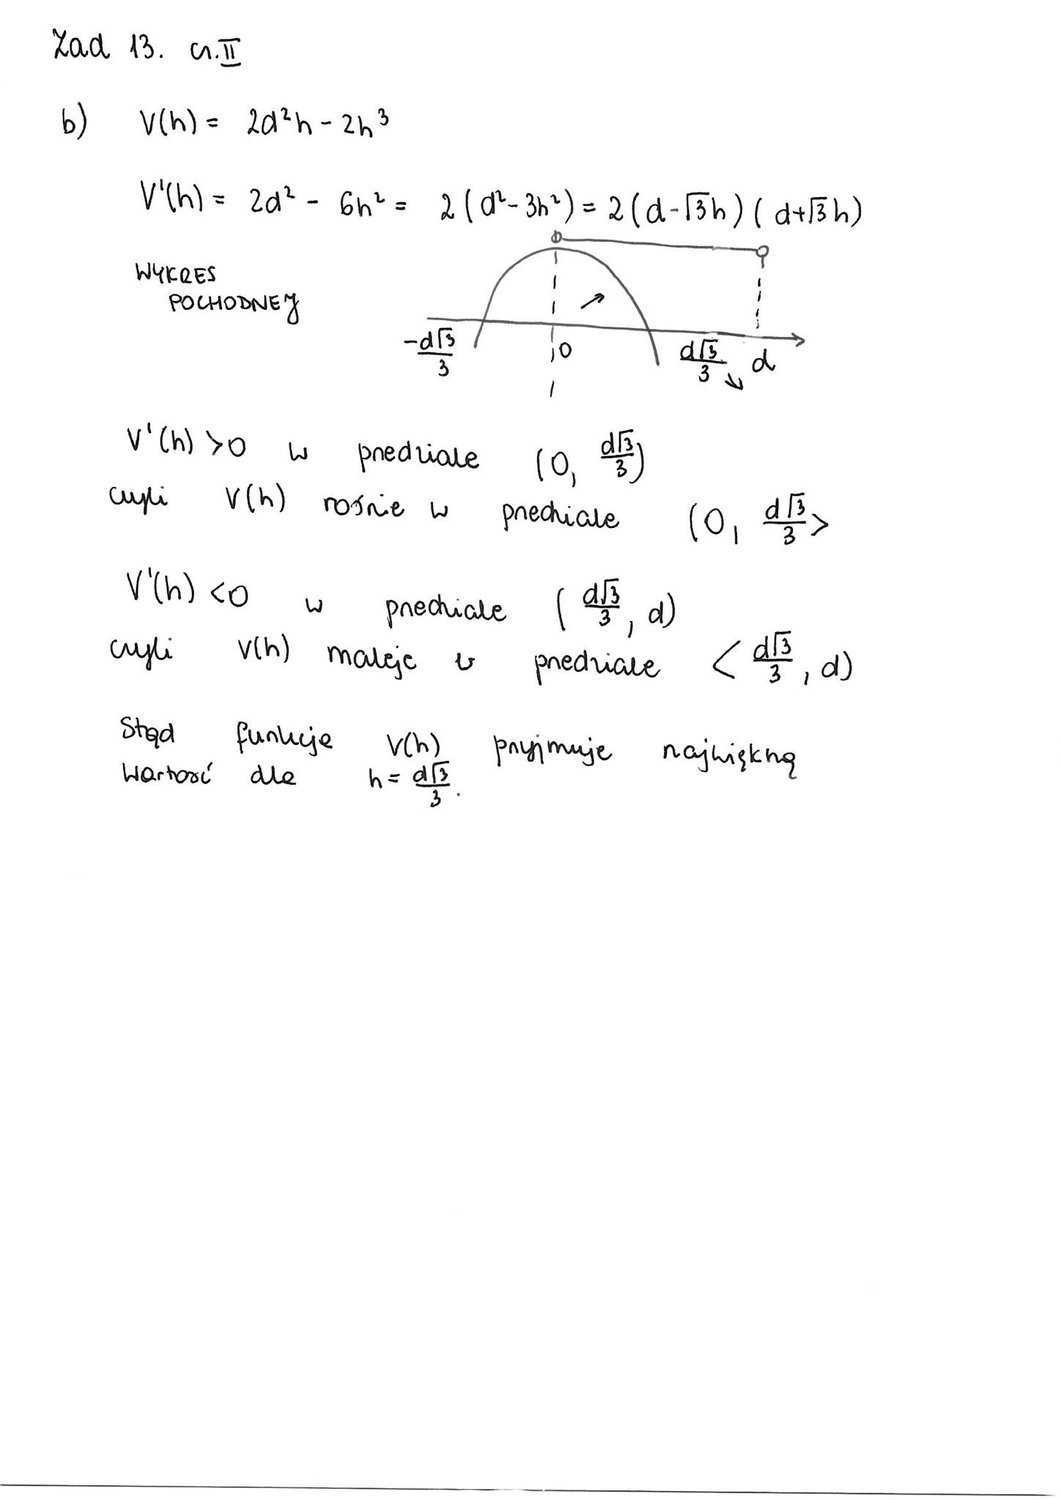 Zad 13. cz. II
b) V(h) = 2d²h - 2h³
V'(h) = 2d² - 6h² = 2(d² - 3h²) = 2(d - √3h)(d + √3h)
WYKRES
POCHODNEJ
-d√3/3 0 d√3/3 d
V'(h) > 0 w przedziale (0, d√3/3)
czyli V(h) rośnie w przedziale (0, d√3/3>
V'(h) < 0 w przedziale (d√3/3, d)
czyli V(h) maleje w przedziale <d√3/3, d)
Stąd funkcja V(h) przyjmuje największą
wartość dla h = d√3/3.